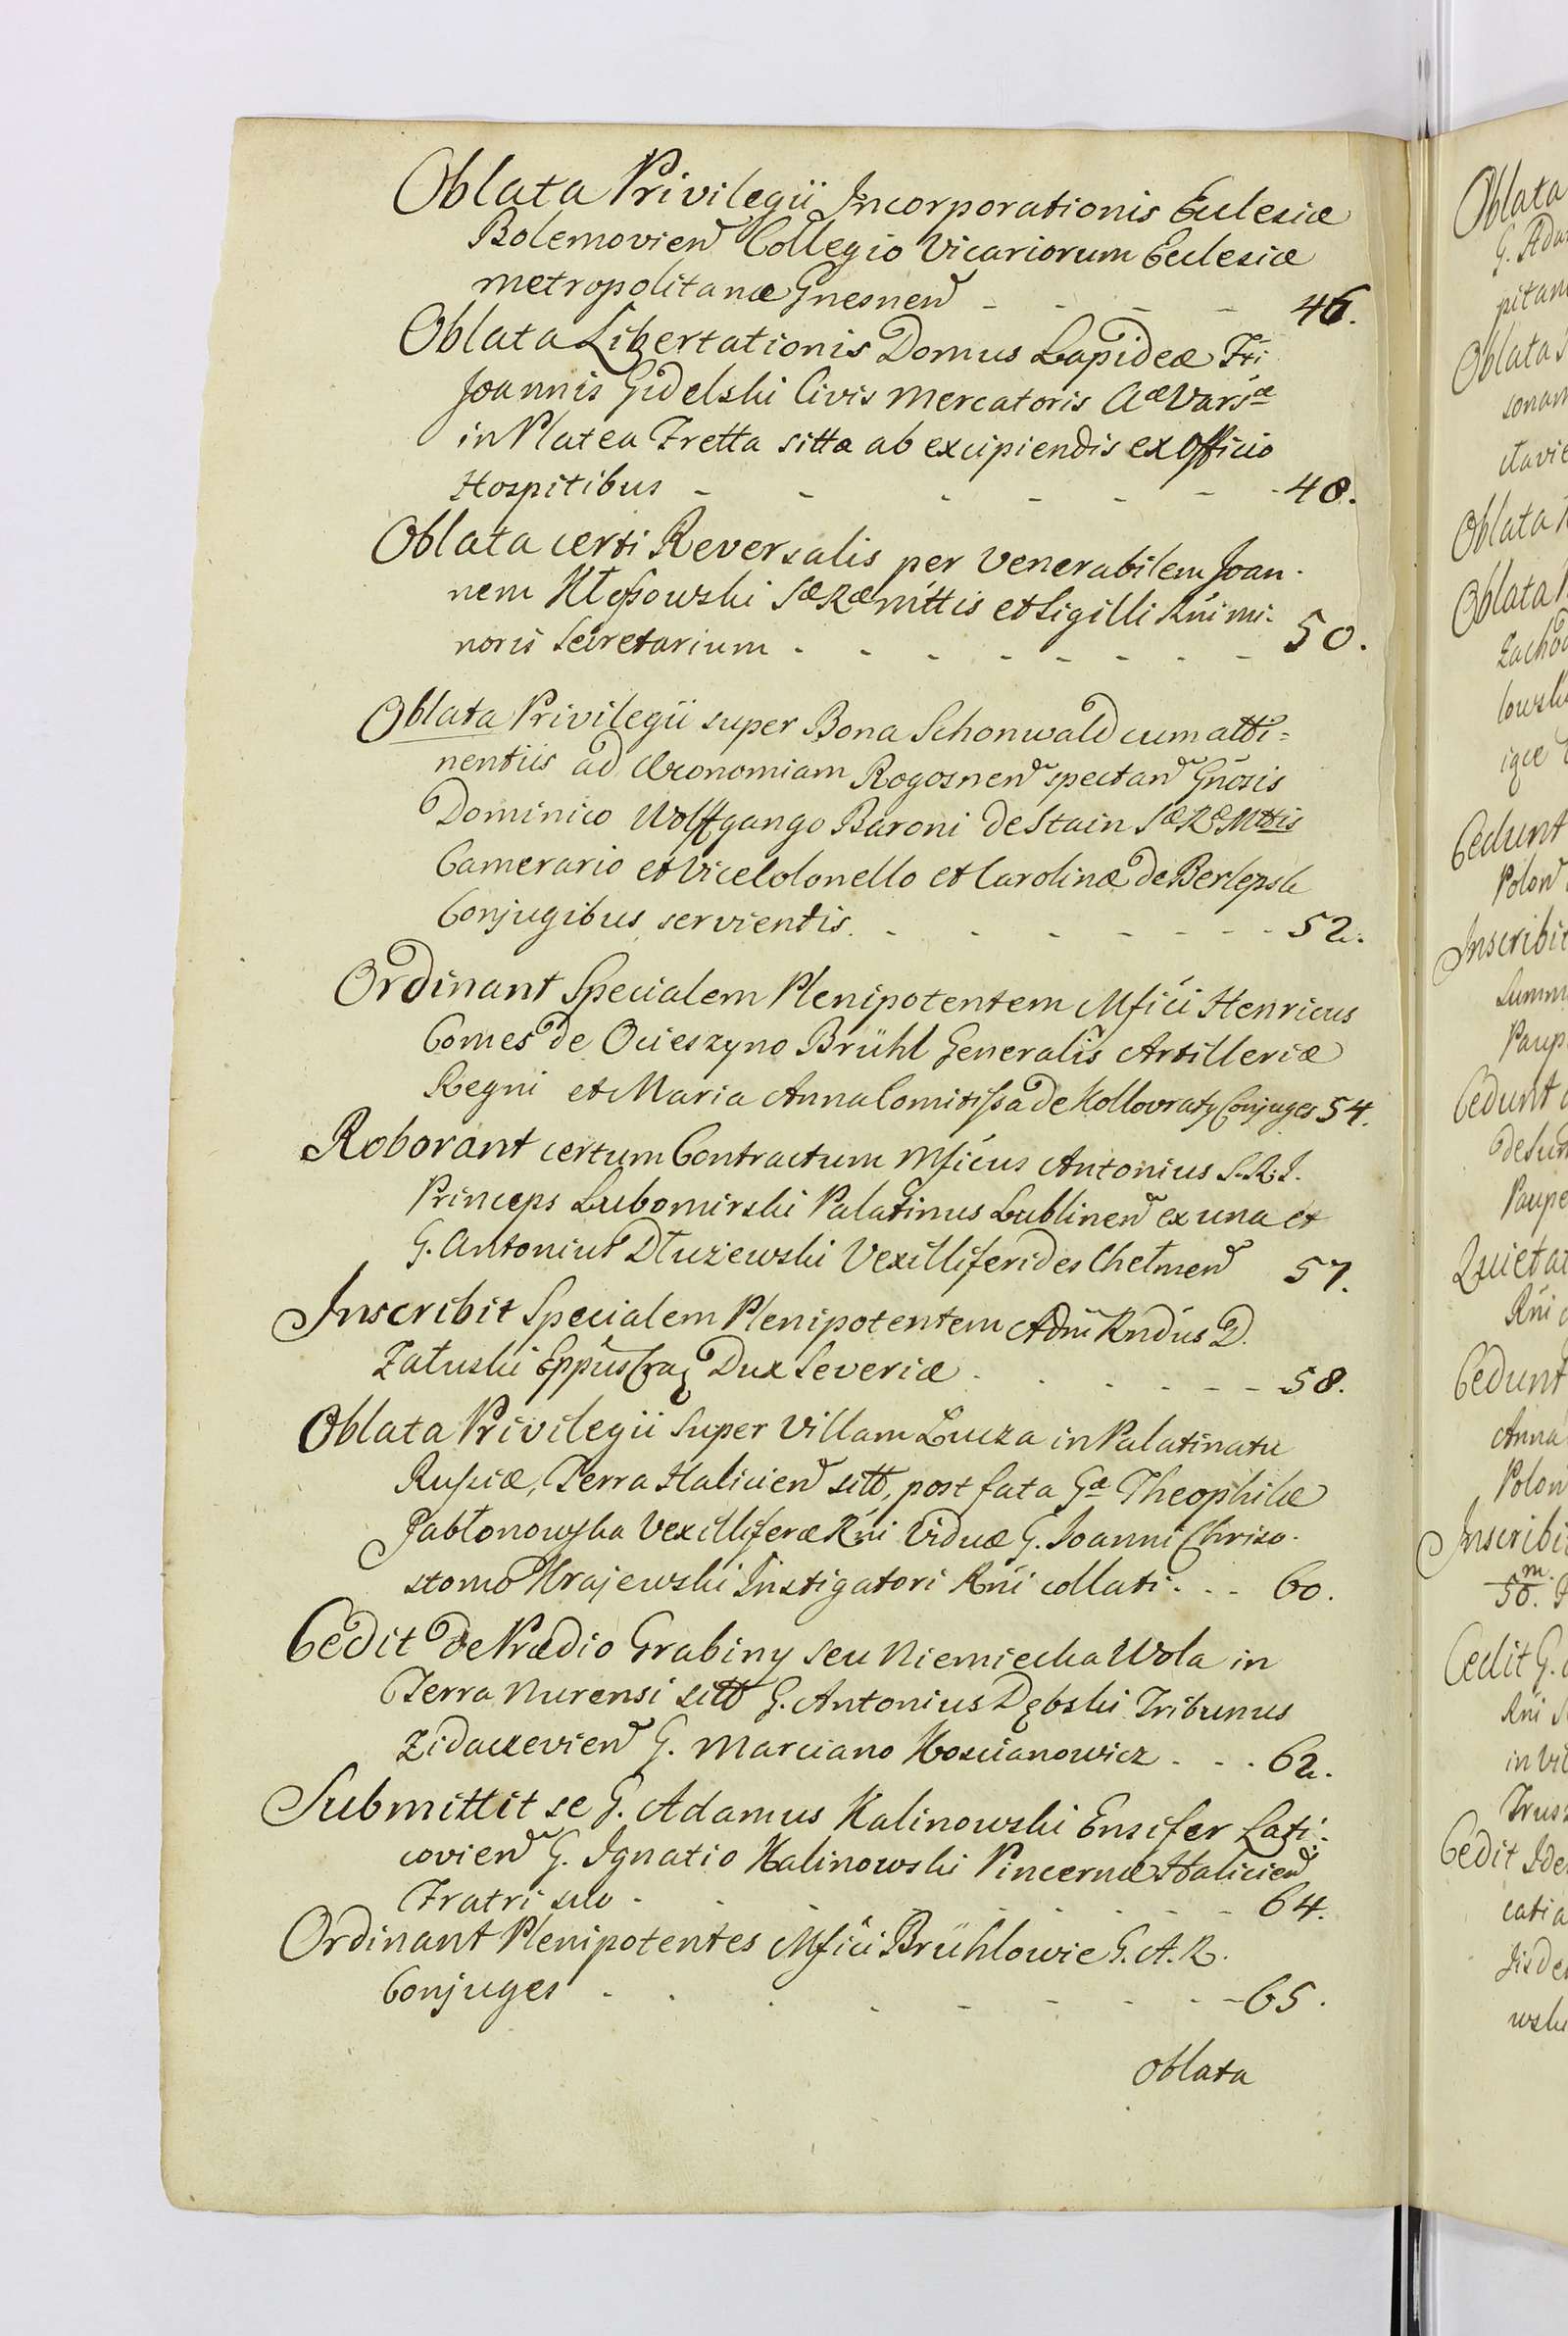 Oblata Privilegii Incorporationis Ecclesiæ
Bolemovien Collegio Vicariorum Ecclesiæ
metropolitanæ Gnesnen - - - - 46.
Oblata Libertationis Domus Lapideæ Fri
Joannis Gidelski Civis Mercatoris Aæ Varsæ
in Platea Fretta sitta ab excipiendis ex Officio
Hospitibus - - - - - - - 48.
Oblata certi Reversalis per Venerabilem Joan-
nem Kłossowski Sæ Ræ Mttis et Sigilli Rni mi-
noris Secretarium - - - - - - - 50.
Oblata Privilegii super Bona Schonwald cum atti=
nentiis ad Œconomiam Rogosnen spectan Gnosis
Dominico Wolffgango Baroni de Stain Sæ Ræ Mttis
Camerario et ViceColonello et Carolinæ de Berlepsh
Conjugibus servientis - - - - - - 52.
Ordinant Specialem Plenipotentem Mfici Henricus
Comes de Ocieszyno Brühl Generalis Artilleriæ
Regni et Maria Anna Comitissa de Kollovraty Conjuges 54.
Roborant certum Contractum Mficus Antonius S.R.I.
Princeps Lubomirski Palatinus Lublinen ex una et
G. Antonius Dłużewski Vexilliferides Chełmen 57.
Inscribit Specialem Plenipotentem Adm Rndus D.
Załuski Eppus Crac Dux Severiæ - - - - - 58.
Oblata Privilegii Super Villam Łucza in Palatinatu
Russiæ, Terra Halicien sitt, post fata Gæ Theophilæ
Jabłonowska Vexilliferæ Rni Viduæ G. Joanni Chriso-
stomo Krajewski Instigatori Rni collati - - - 60.
Cedit de Prædio Grabiny seu Niemiecka Wola in
Terra Nurensi sitt G. Antonius Dębski Tribunus
Zidaczevien G. Marciano Koscianowicz - - - 62.
Submittit se G. Adamus Kalinowski Ensifer Laty-
covien G. Ignatio Kalinowski Pincernæ Halicien
Fratri suo - - - - - - - 64.
Ordinant Plenipotentes Mfici Brühlowie G. A. R.
Conjuges - - - - - - - 65.
Oblata